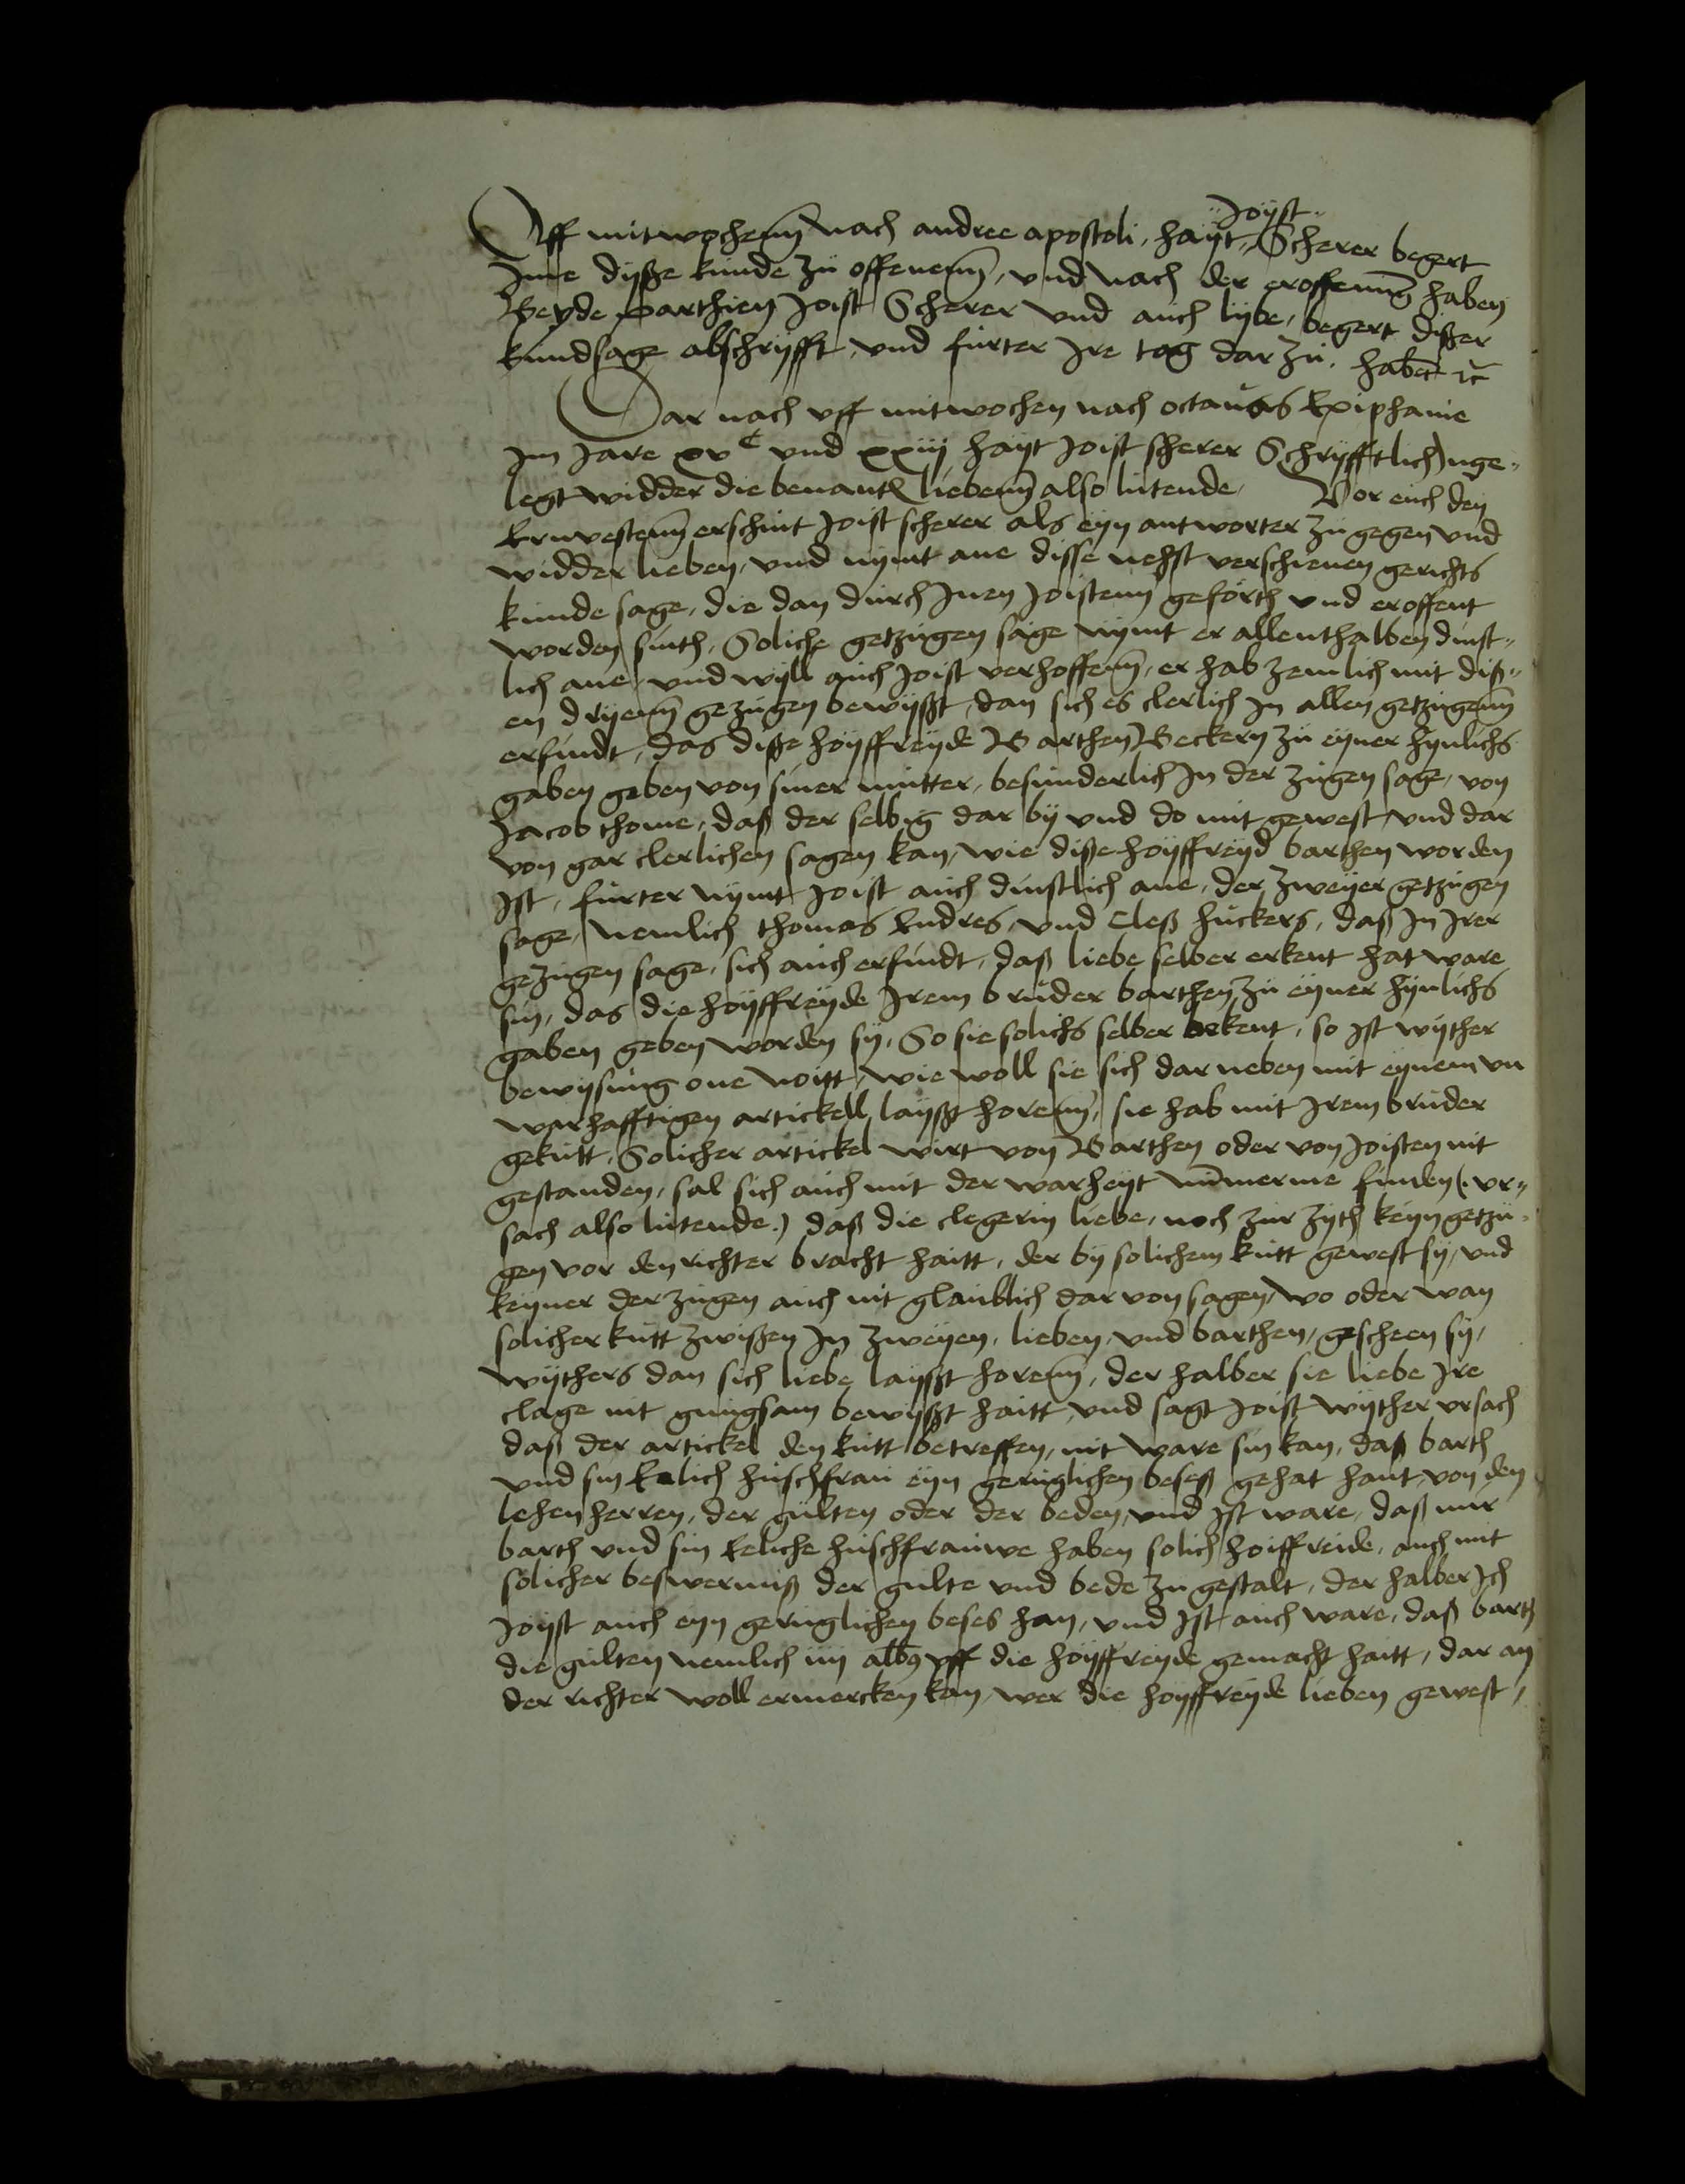 Joÿst
Vff mitwochenn nach andree apostoli, haÿt Scherer begert
Jme dÿsze kunde zu offenenn, vnd nach der eroffenung haben
Beyde parthien Joist Scherer vnd auch lybe, begert diszer
kundsage abschryfft, vnd furter Jre tag dar zu. haben ꝛc
Dar nach vff mitwochen nach octauas Epiphanie
Jm Jare xvᶜ vnd xxiij haÿt Joist scherer Schryfftlich Jnge„
legt widder die benanth liebenn also lutende, Vor euch den
Ernvestenn erschint Joist scherer als eÿn antworter zu gegen vnd
widder lieben, vnd nÿmt ane disse nehst verschienen gerichts
kunde sage, die dan durch Jnen Joistenn geforth vnd eroffent
worden sinth, Soliche getzugen sage nÿmt er allenthalben dinst„
lich ane, vnd wÿll auch Joist verhoffenn, er hab zemlich mit diß„
en drÿenn gezugen bewÿßt, dan sich es clerlich Jn allen getzugenn
erfindt, das disze hoÿffreÿde Barthen Beckern zu eÿner hÿnlichs
gaben geben von siner mutter, besunderlich Jn der zugen sage, von
Jacob thome, daß der selbig dar bÿ vnd do mit gewest vnd dar
von gar clerlichen sagen kan, wie disze hoÿffreÿd barthen worden
Jst, furter nÿmt Joist auch dinstlich ane, der zweÿer getzugen
sage, nemlich thomas Endres, vnd Cleß huckers, daß Jn Jrer
gezugen sage, sich auch erfindt, daß liebe selber erkent hat ware
sin, das die hoÿffreÿde Jrem bruder barthen zu eÿner hÿnlichs
gaben geben worden sÿ, So sie solichs selber bekent, so Jst wÿther
bewÿsung one noitt, wie woll sie sich dar neben mit eÿnem vn
warhafftigen artickell laÿßt horenn, sie hab mit Jrem bruder
gekutt, Solicher artickel wirt von Barthen oder von Joisten nit
gestanden, sal sich auch mit der warheÿt nummerme finden (. vr„
sach also lutende.) daß die clegerin liebe, noch zur zÿth keÿn getzu„
gen vor den richter bracht haitt, der bÿ solichem kutt gewest sÿ, vnd
keÿner der zugen auch nit glaublich dar von sagen, wo oder wan
solicher kutt zwiszen Jn zweÿen, lieben, vnd barthen, gescheen sÿ,
wÿthers dan sich liebe laÿßt horenn, der halber sie liebe Jre
clage nit gnugsam bewÿßt haitt, vnd sagt Joist wÿther vrsach
daß der artickel den kutt betreffen, nit ware sin kan, daß barth
vnd sin Eelich huschfrau eÿn geruglichen beseß gehat hant von den
lehen herren, der gulten oder der beden, vnd Jst ware, daß mir
barth vnd sin Eeliche huschfrauwe haben solich hoiffreide, auch mit
solicher beswerniß der gulte vnd bede zu gestalt, der halber Jch
Joÿst auch eÿn geruglichen beses han, vnd Jst auch ware, daß barth
die gulten nemlich iiij albꝰ vff die hoÿffreÿde gemacht haitt, dar an
der richter woll ermercken kan, wer die hoÿffreÿde lieben gewest,